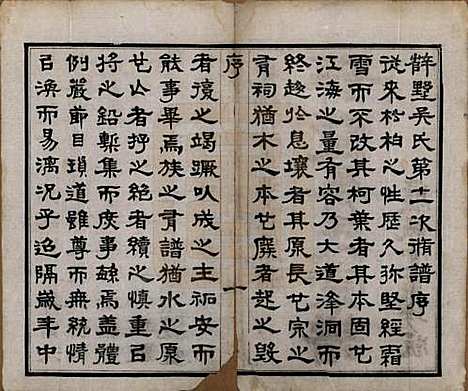 辥墅吳氏第十二次脩譜序
從來松柏之性歷久弥堅經霜
雪而不改其柯葉者其本固也
江海之量有容乃大道洚洞而
終趍於息壤者其原長也宗之
有祠猶木之本也廢者起之毀
序
一
者復之竭蹶以成之主祏安而
能事畢焉族之有譜猶水之原
也者抒之絕者續之慎重以
將之鉛槧集而庶事焉蓋體
例嚴節目瑣道雖尊而無統情
以渙而易漓況乎迨隔歲年中